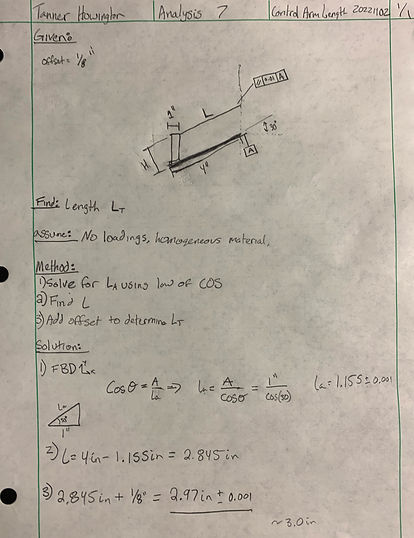 Tanner Howington Analysis 7 Control Arm Length 20221102 1/1
Given:
offset = 1/8"
1"
L
// 0.01 A
30°
H
4"
A
Find: Length L_T
assume: No loadings, homogeneous material,
Method:
1) Solve for L_A using law of COS
2) Find L
3) Add offset to determine L_T
Solution:
1) FBD L_A
Cosθ = A/L_a => L_a = A/cosθ = 1"/cos(30) L_a = 1.155 ± 0.001
L_a
30°
1"
2) L = 4in - 1.155in = 2.845 in
3) 2.845in + 1/8" = 2.97in ± 0.001
~3.0in